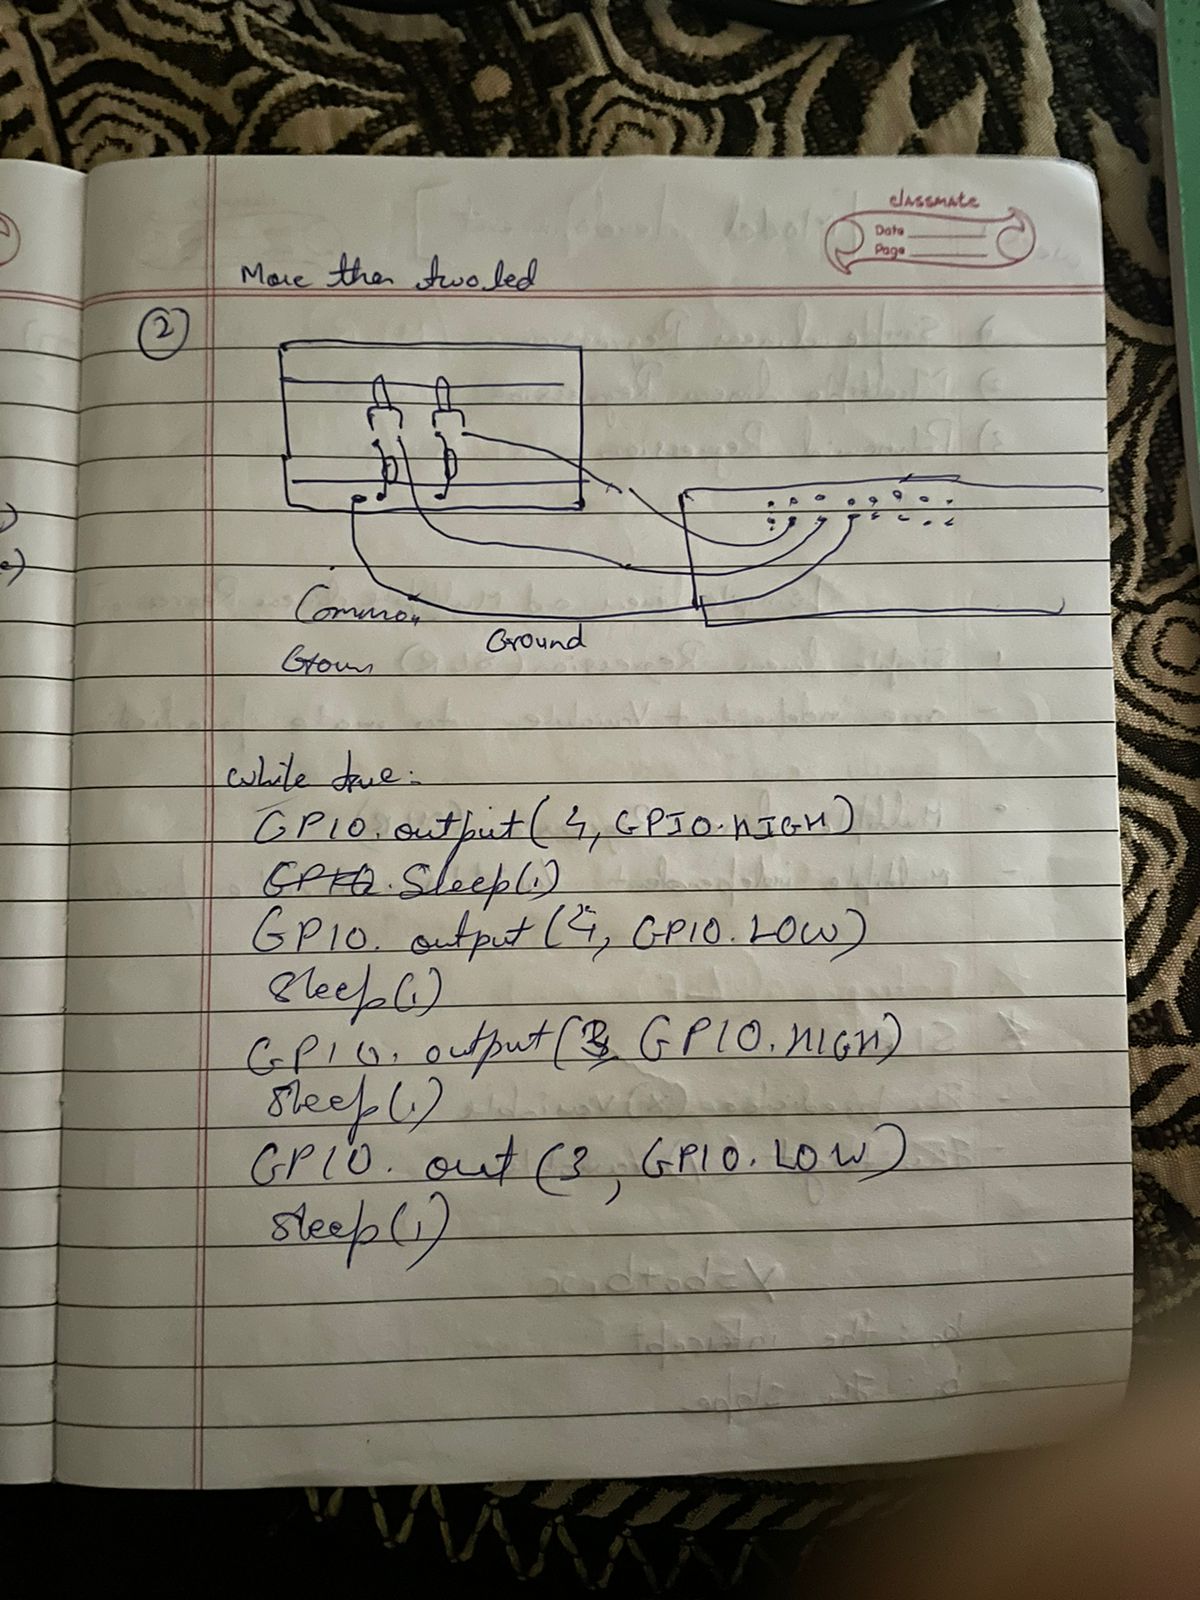 classmate
Date
Page
More then two led
2
Common
Groun
Ground
While true:
GPIO.output(4, GPIO.HIGH)
GPIO.Sleep(1)
GPIO. output(4, GPIO.LOW)
Sleep(1)
GPIO. output(3, GPIO.HIGH)
Sleep(1)
GPIO. out (3, GPIO.LOW)
sleep(1)